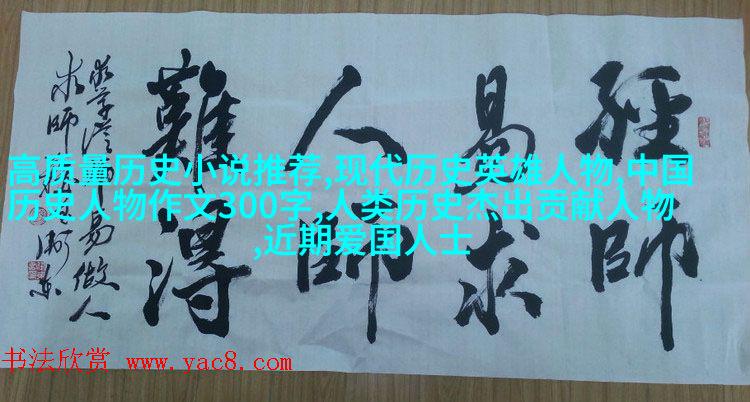 經師
易求
人師
難得
高质量历史小说推荐,现代历史英雄人物,中国
历史人物作文300字,人类历史杰出贡献人物
,近期爱国人士
书法欣赏 www.yac8.com